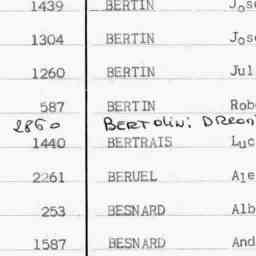 1439 BERTIN
1304 BERTIN
1260 BERTIN Jul
587 BERTIN Rob
2860 BERTOLINI
1440 BERTRAIS Luc
2261 BERUEL Ale
253 BESNARD Alb
1587 BESNARD And